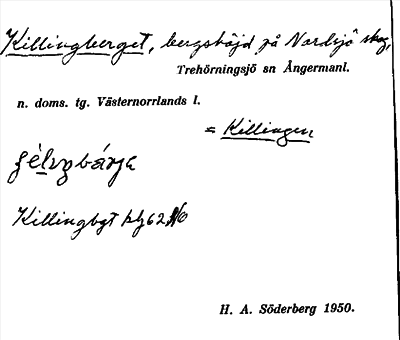 Killingberget, bergshöjd på Nordsjö skog,
Trehörningsjö sn Ångermanl.
n. doms. tg. Västernorrlands l.
= Killingen
Killingbgt
H. A. Söderberg 1950.